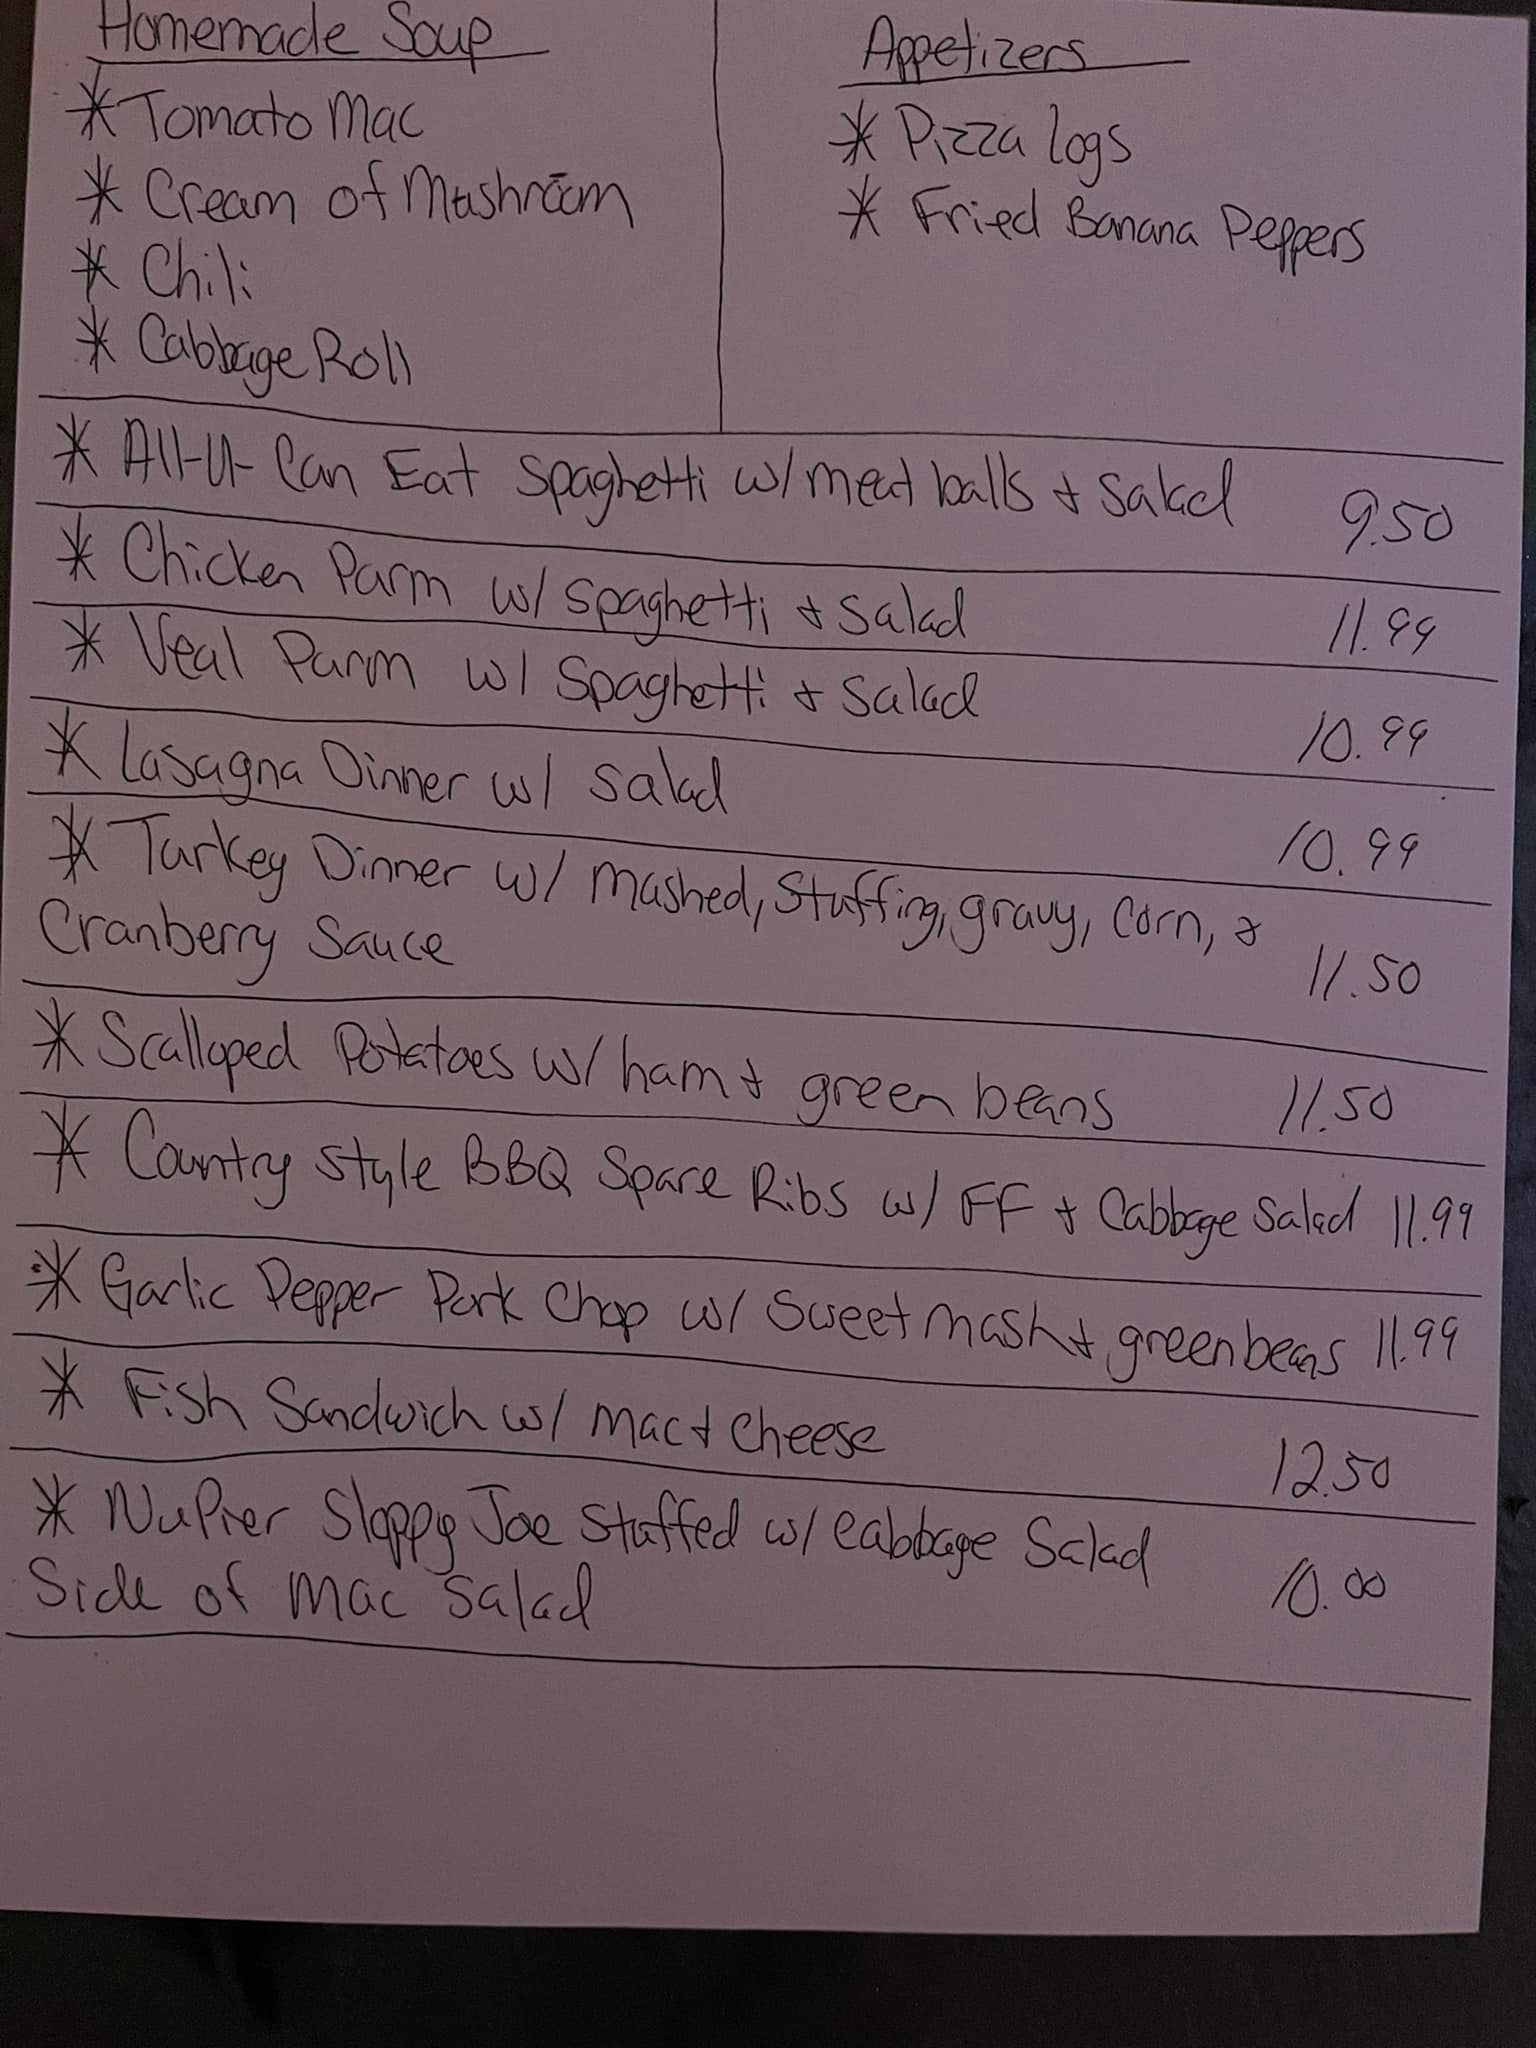 Homemade Soup
* Tomato Mac
* Cream of Mushroom
* Chili
* Cabbage Roll
Appetizers
* Pizza logs
* Fried Banana Peppers
* All-U-Can Eat Spaghetti w/ meat balls & Salad 9.50
* Chicken Parm w/ Spaghetti & Salad 11.99
* Veal Parm w/ Spaghetti & Salad 10.99
* Lasagna Dinner w/ Salad 10.99
* Turkey Dinner w/ Mashed, Stuffing, gravy, Corn, &
Cranberry Sauce 11.50
* Scalloped Potatoes w/ ham & green beans 11.50
* Country Style BBQ Spare Ribs w/ FF & Cabbage Salad 11.99
* Garlic Pepper Pork Chop w/ Sweet mash & green beans 11.99
* Fish Sandwich w/ Mac & Cheese 12.50
* NuPier Sloppy Joe Stuffed w/ Cabbage Salad
Side of Mac Salad 10.00